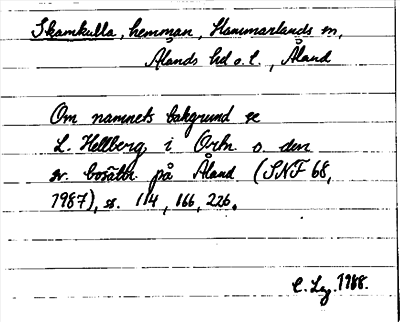 Skamkulla, hemman, Hammarlands sn,
Ålands hd o. l., Åland
Om namnets bakgrund se
L. Hellberg i Ortn. o. den
sv. bosättn. på Åland (SNF 68,
1987), ss. 114, 166, 226.
1988.